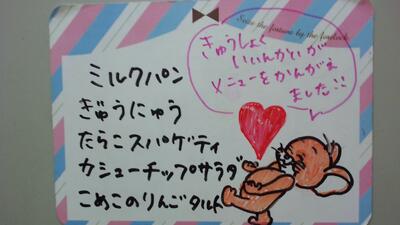 Seize the fortune by the forelock.
きゅうしょく
いいんかいが
メニューをかんがえ
ました!!
ミルクパン
ぎゅうにゅう
たらこスパゲティ
カシューチップサラダ
こめこのりんごタルト